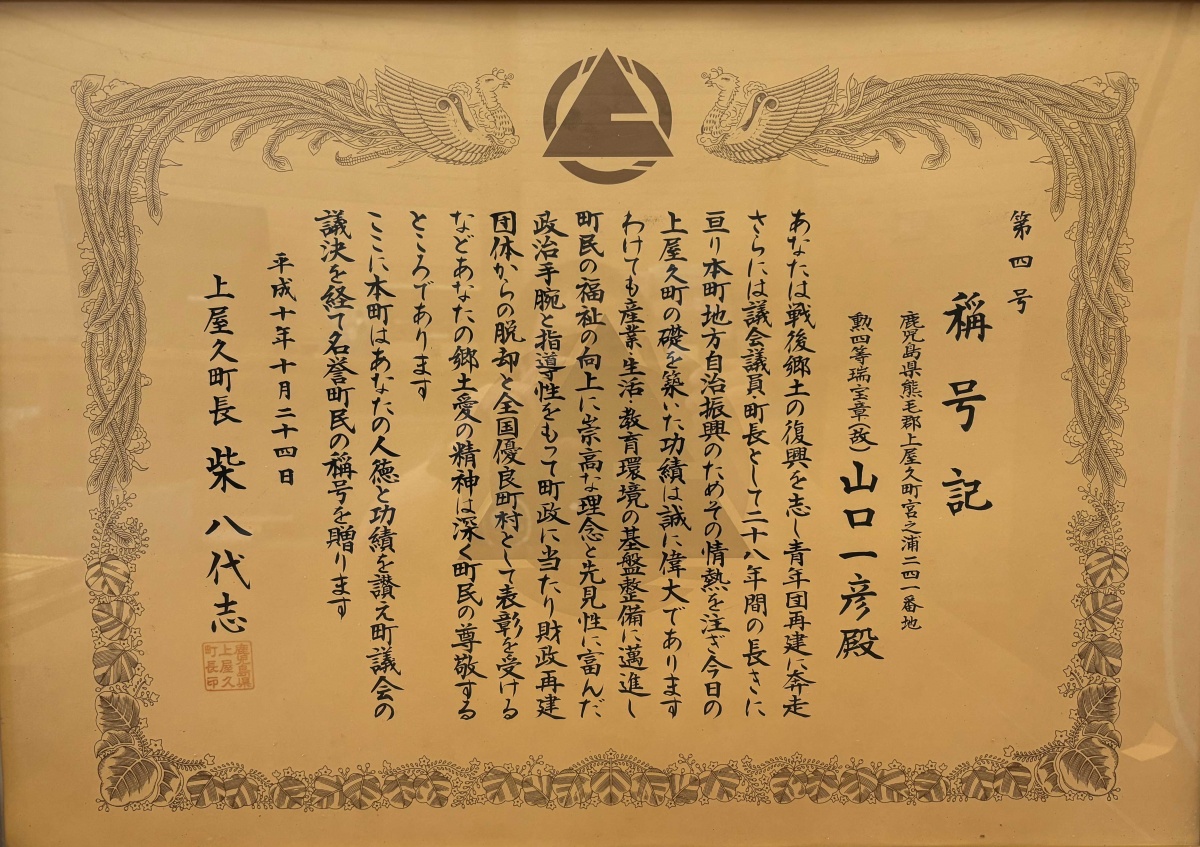 第四号
稱号記
鹿児島県熊毛郡上屋久町宮之浦二四一番地
勲四等瑞宝章(故)山口一彦殿
あなたは戦後郷土の復興を志し青年団再建に奔走
さらには議会議員・町長として二十八年間の長きに
亘り本町地方自治振興のためその情熱を注ぎ今日の
上屋久町の礎を築いた功績は誠に偉大であります
わけても産業・生活・教育環境の基盤整備に邁進し
町民の福祉の向上に崇高な理念と先見性に富んだ
政治手腕と指導性をもって町政に当たり財政再建
団体からの脱却と全国優良町村として表彰を受ける
などあなたの郷土愛の精神は深く町民の尊敬する
ところであります
ここに本町はあなたの人徳と功績を讃え町議会の
議決を経て名誉町民の稱号を贈ります
平成十年十月二十四日
上屋久町長 柴八代志
鹿児島県
上屋久
町長印